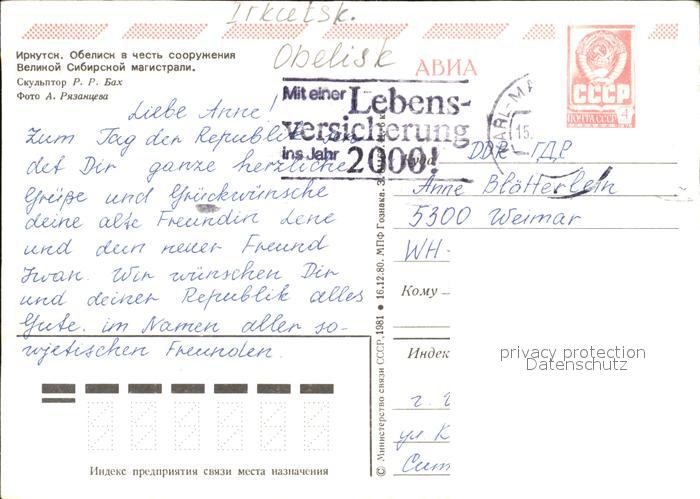 Irkutsk.
Obelisk
Иркутск. Обелиск в честь сооружения
Великой Сибирской магистрали.
Скульптор Р. Р. Бах
Фото А. Рязанцева
АВИА
СССР
ПОЧТА СССР
4
Mit einer Lebens-
versicherung
ins Jahr 2000!
15.
Liebe Anne!
Zum Tag der Republik
det Dir ganze herzliche
Grüße und Glückwünsche
deine alte Freundin Lene
und dein neuer Freund
Iwan. Wir wünschen Dir
und deiner Republik alles
Gute. im Namen aller so-
wjetischen Freunden.
Куда
DDR ГДР
Anne Blötterlein
5300 Weimar
WH-
Кому
Индек
г.
ул К
Сит
privacy protection
Datenschutz
© Министерство связи СССР, 1981 • 16.12.80. МПФ Гознака.
Индекс предприятия связи места назначения